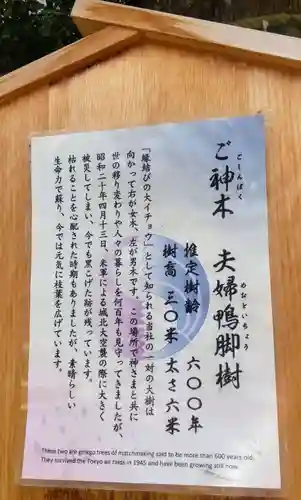 ごしんぼく
めおといちょう
ご神木　夫婦鴨脚樹
推定樹齢　六〇〇年
樹高　三〇米　太さ六米
「縁結びの大イチョウ」として知られる当社の一対の大樹は
向かって右が女木、左が男木です。この場所で神さまと共に
世の移り変わりや人々の暮らしを何百年も見守ってきましたが、
昭和二十年四月十三日、米軍による城北大空襲の際に大きく
被災してしまい、今でも黒こげた跡が残っています。
枯れることを心配された時期もありましたが、素晴らしい
生命力で蘇り、今では元気に枝葉を広げています。
These two are ginkgo trees of matchmaking said to be more than 600 years old.
They survived the Tokyo air raids in 1945 and have been growing still now.